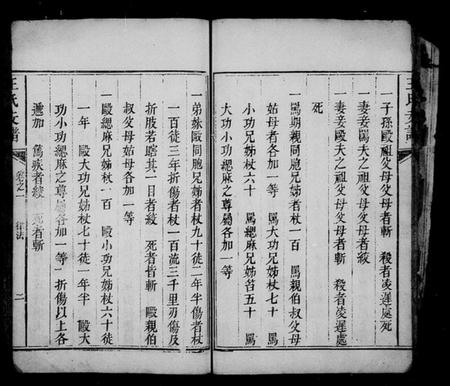 一子孫毆祖父母父母者斬　殺者凌遲處死
一妻妾罵夫之祖父母父母者絞
一妻妾毆夫之祖父母父母者斬　殺者凌遲處
死
一罵期親同胞兄姊者杖一百　罵親伯叔父母
姑母者各加一等　罵大功兄姊杖七十　罵
小功兄姊杖六十　罵緦麻兄姊笞五十　罵
大功小功緦麻之尊屬各加一等
一弟妹毆同胞兄姊者杖九十徒二年半傷者杖
一百徒三年折傷者杖一百流三千里刃傷及
折肢若瞎其一目者絞　死者皆斬　毆親伯
叔父母姑母各加一等
一毆緦麻兄姊杖一百　毆小功兄姊杖六十徒
一年　毆大功兄姊杖七十徒一年半　毆大
功小功緦麻之尊屬各加一等　折傷以上各
遞加　篤疾者絞　死者斬
王氏支譜
卷之一
律法
二